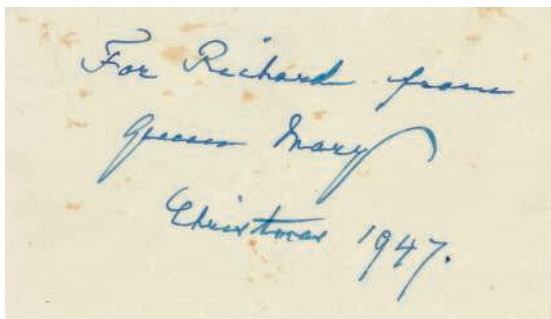 For Richard from
Queen Mary
Christmas 1947.